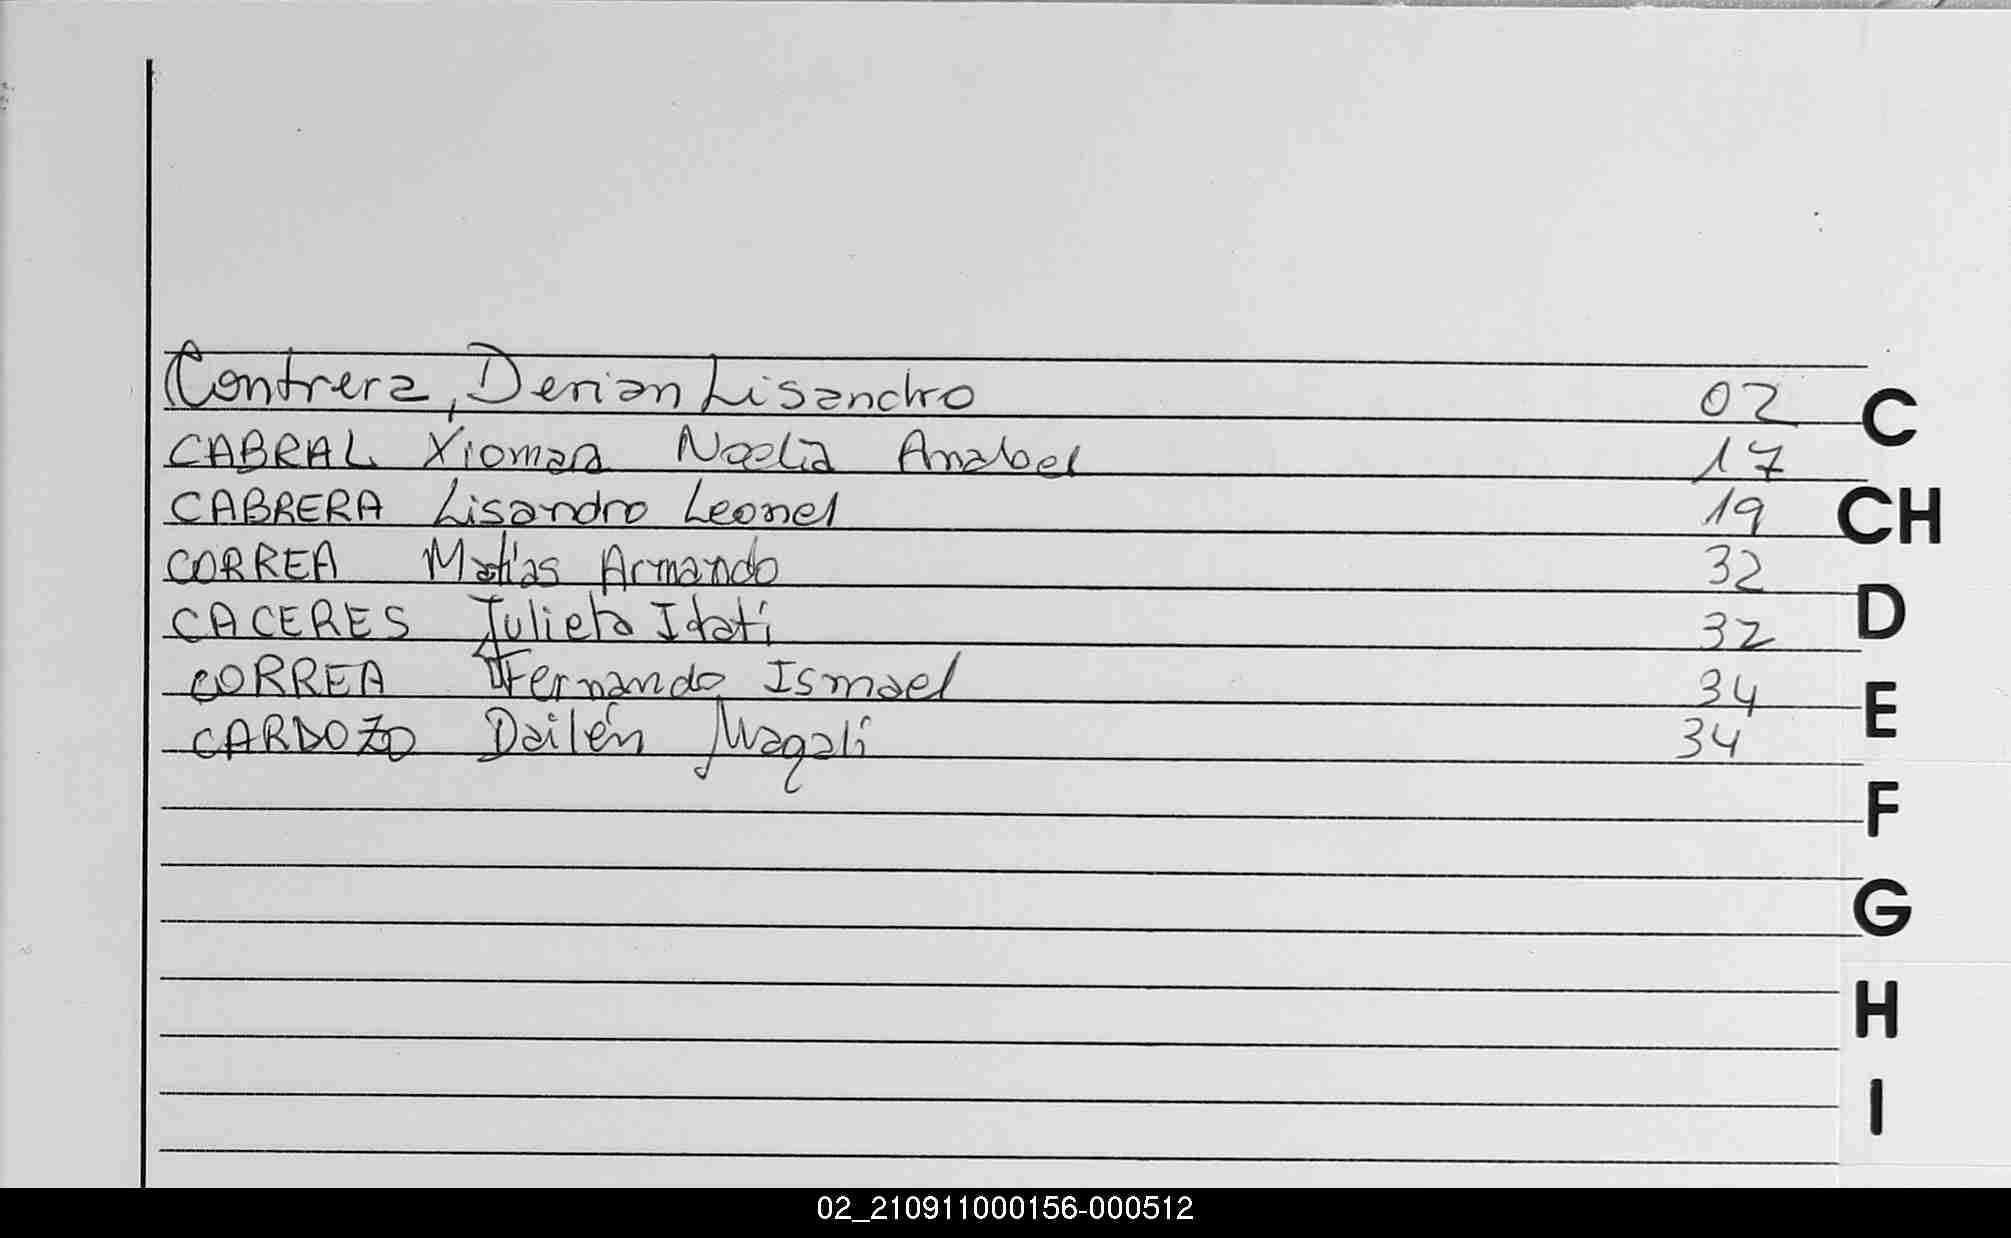 Contrera, Derian Lisandro 02
CABRAL Xiomara Noelia Anabel 17
CABRERA Lisandro Leonel 19
CORREA Matías Armando 32
CACERES Julieta Itatí 32
CORREA Fernando Ismael 34
CARDOZO Dailén Magali 34
C
CH
D
E
F
G
H
I
02_210911000156-000512